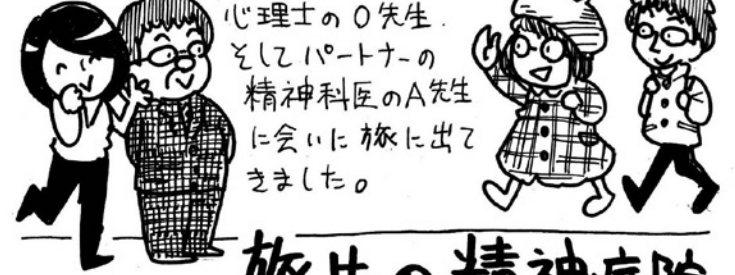 心理士のO先生.
そしてパートナーの
精神科医のA先生
に会いに旅に出て
きました。
旅先の精神病院